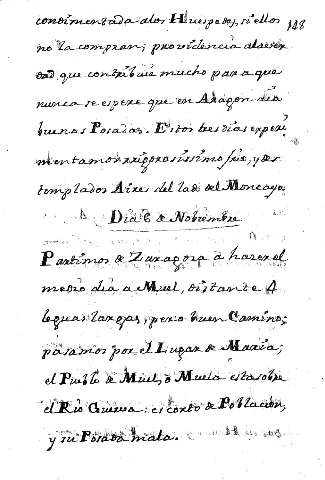 148
condimentada alos Huespedes, si ellos
no la compran; providencia alaver
dad, que contribuie mucho para que
nunca se espere que en Aragon dia
buenas Posadas. Estos tres dias experi
mentamos rigorosissimo frio, y des
templados Aires del lado del Moncayo.
Dia 6 de Nobiembre
Partimos de Zaragoza à hazer el
medio dia a Muel, distante 4
leguas largas, pero buen Camino;
pasamos por el Lugar de Maria;
el Pueblo de Muel, ò Muela esta sobre
el Rio Guerva: es corto de Poblacion,
y su Posada mala.